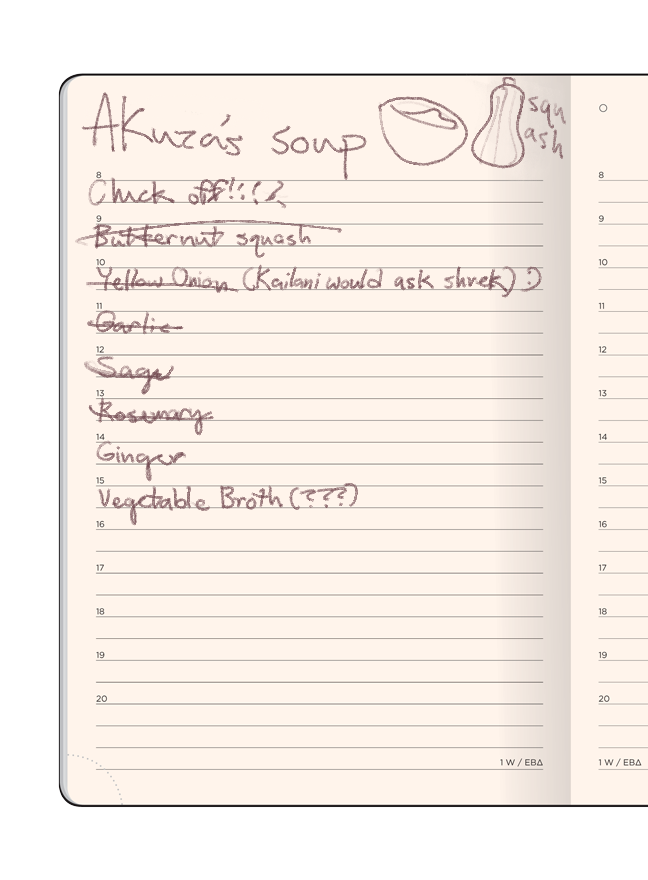 AKuza's soup
squ
ash
8
Chuck off!!!?
9
Butternut squash
10
Yellow Onion (Kailani would ask shrek) :)
11
Garlic
12
Sage
13
Rosemary
14
Ginger
15
Vegetable Broth (???)
16
17
18
19
20
1 W / EBΔ
8
9
10
11
12
13
14
15
16
17
18
19
20
1 W / EBΔ